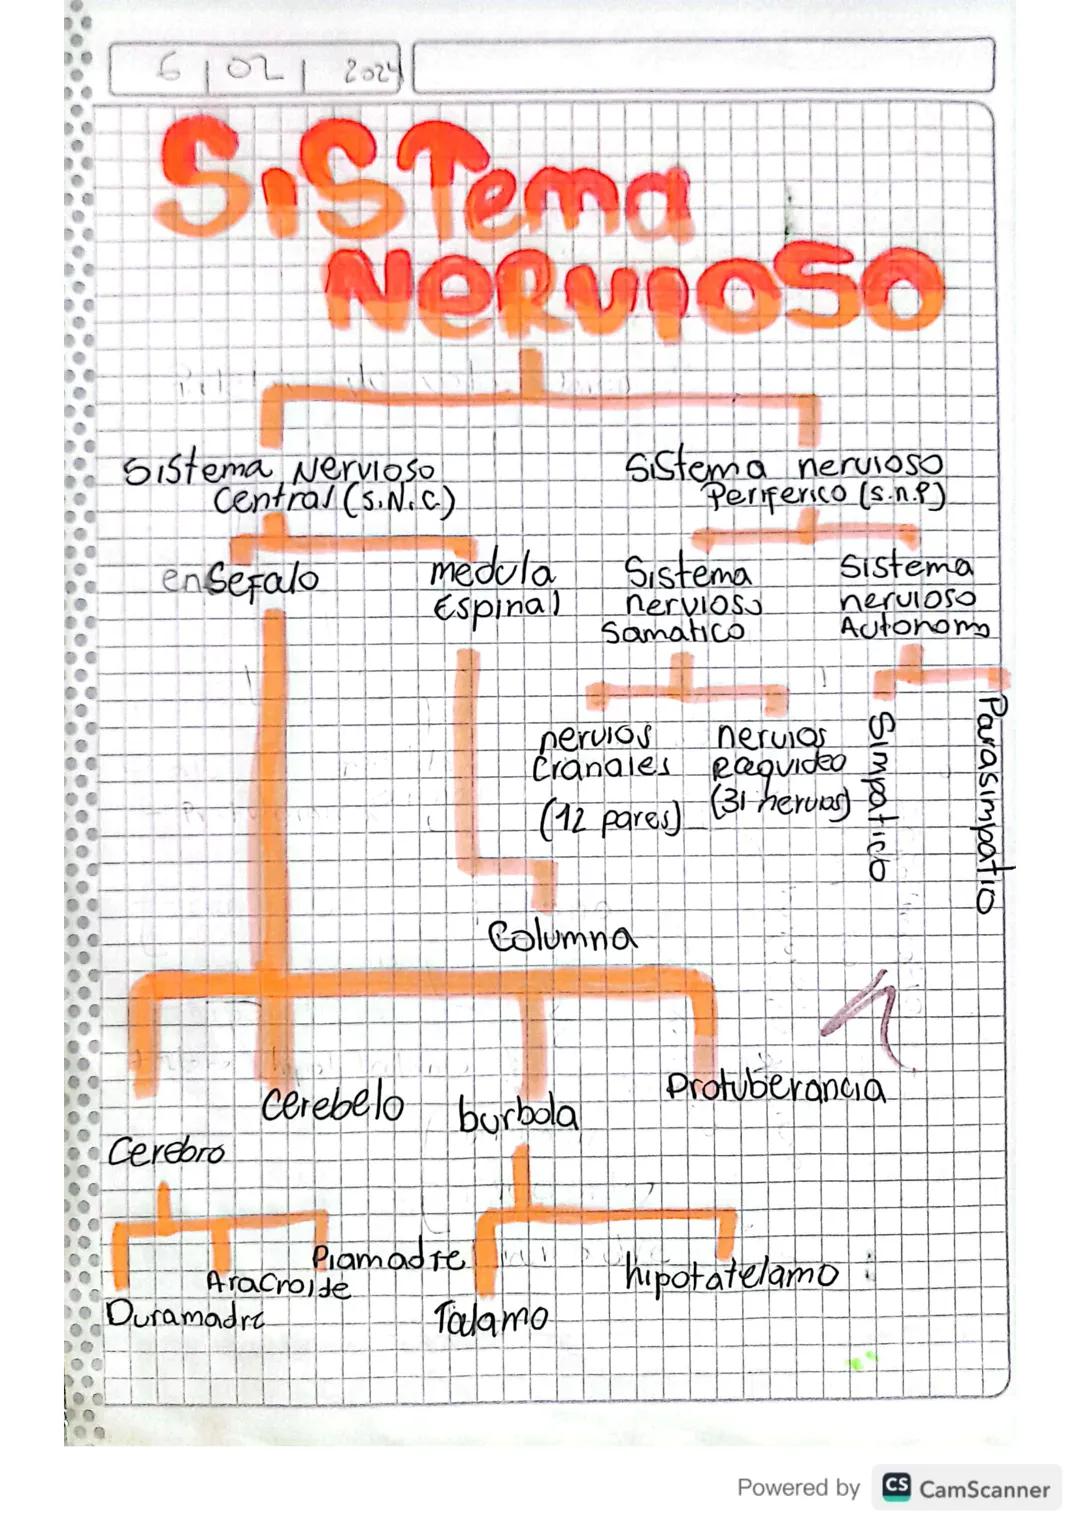 6 | 02 | 2024
SiSTema
NeRVIOSO
Sistema Nervioso
Central (S.N.C)
Sistema nervioso
Periferico (s.n.p)
enSefalo
medula
Espinal
Sistema
nervioso
Samatico
Sistema
nervioso
Autonomo
nervios
Cranales
(12 pares)
nervios
Raquideo
(31 nervios)
Simpatico
Parasimpatio
Columna
Cerebro
Cerebelo
burbola
Protuberancia
Duramadre
Aracroide
Piamadre
Talamo
hipotatelamo
Powered by CS CamScanner